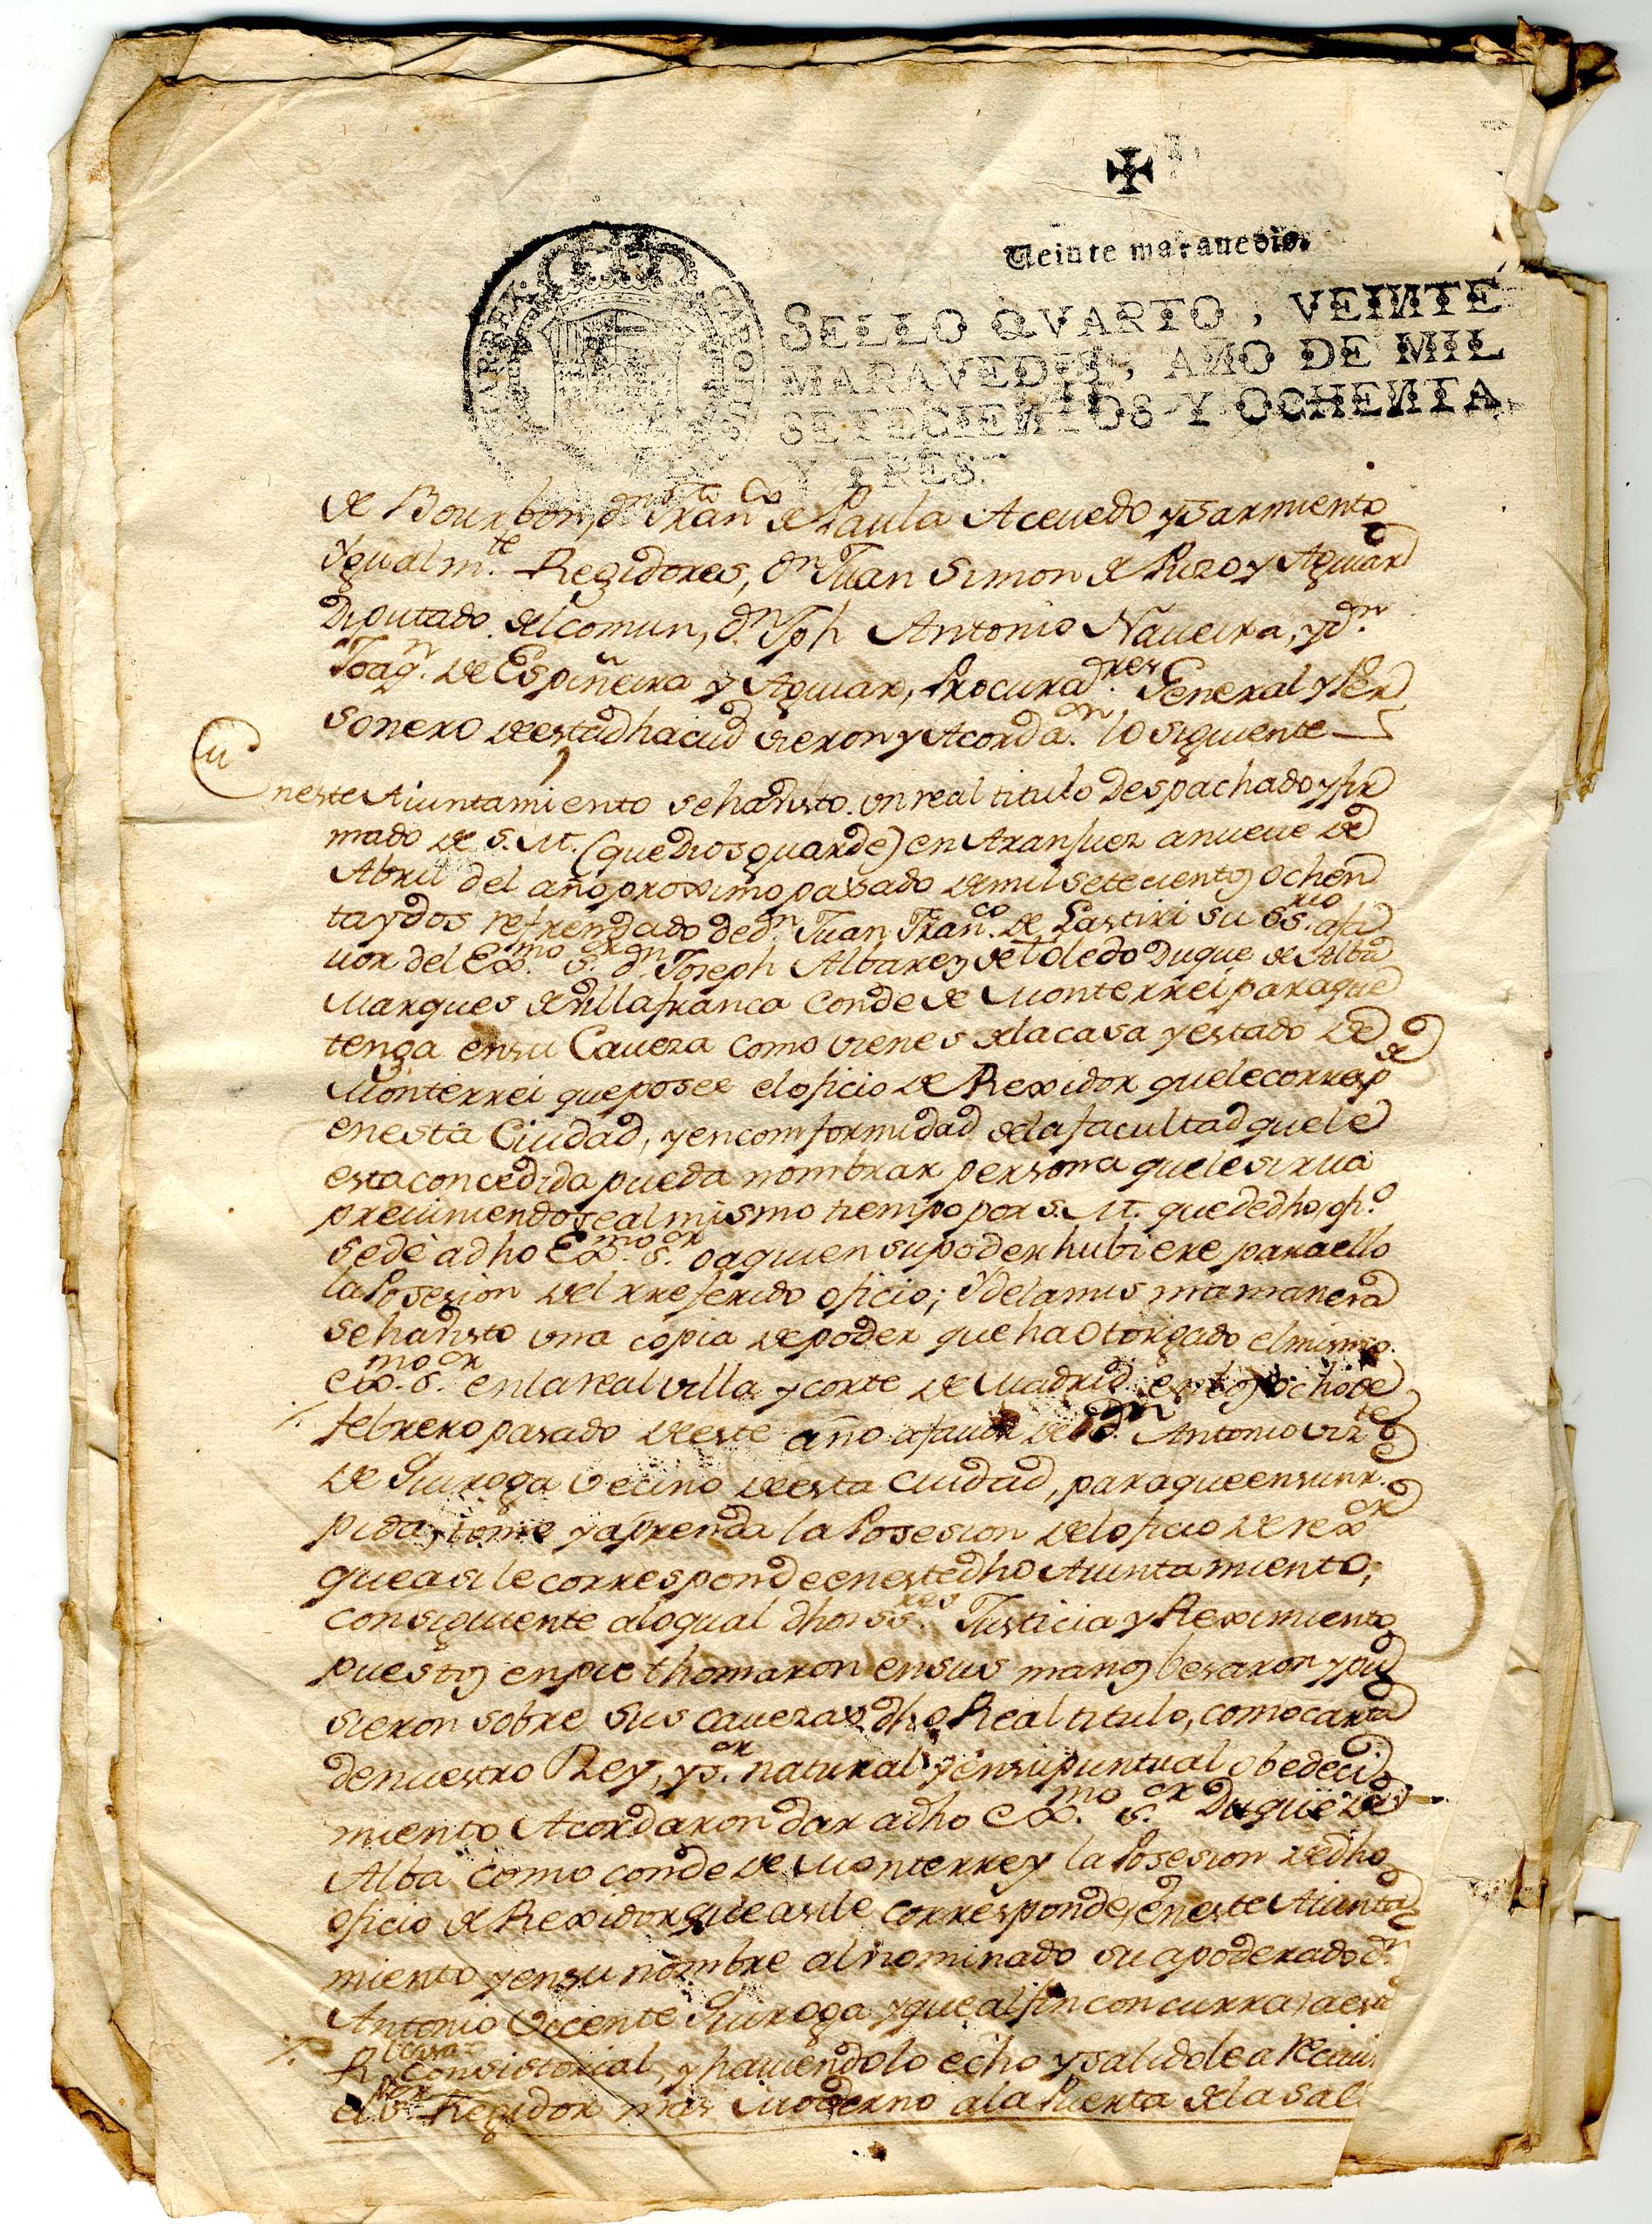 Veinte marauedis.
SELLO QVARTO, VEINTE
MARAVEDIS, AÑO DE MIL
SETECIENTOS Y OCHENTA
Y TRES.
CAROLUS
de Bourbon, dn Franco de Paula Aceuedo y Sarmiento
Ygualmte. Regidores, dn Juan Simon de Puzo y Aguiar
Diputado del comun, dn. Jph Antonio Naueira, y dn.
Joaqn. de Espiñeira y Aguiar, Procuradres. General y Per
sonero de esta dha ciud vieron y Acordaon. lo siguiente
En este Aiuntamiento se ha visto un real titulo Despachado y fir
mado de S. M. (que Dios guarde) en Aranjuez a nueue de
Abril del año proximo pasado de mil setecientos ochen
ta y dos refrendado de dn. Juan Franco. de Lastiri su Ssrio. a fa
uor del Exmo. Sor. dn Joseph Albarez de Toledo Duque de Alba
Marques de Villafranca Conde de Monterrei para que
tenga en su Caueza como vienes de la casa y estado de
Monterrei que posee el oficio de Rexidor que le corresp de
en esta Ciudad, y en comformidad de la facultad que le
esta concedida pueda nombrar persona que le sirua
preuiniendose al mismo tiempo por S. M. que de dho ofo.
se dè a dho Exmo. Sor. o a quien su poder hubiere para ello
la Posesion del rreferido oficio; Y de la mis ma manera
se ha visto una copia de poder que ha Otorgado el mismo
exmo. Sor. en la real villa y corte de Madrid en los ocho de
febrero pasado de este año a fauor de dn. Antonio Vizte
de Quiroga Vecino de esta ciudad, para que en su nre.
pida, tome y aprenda la Posesion del oficio de rexor
que asi le corresponde en este dho Aiuntamiento;
consiguiente a lo qual dhos SSres. Justicia y Reximiento
puestos en pie thomaron en sus manos besaron y pu
sieron sobre sus cauezas dho Real titulo, como carta
de nuestro Rey, y Sor. natural y en su puntual obedeci
miento Acordaron dar a dho exmo. Sor Duque de
Alba como conde de Monterrey la Posesion de dho
oficio de Rexidor que asi le corresponde en este Aiunta
miento y en su nombre al nominado su apoderado dn.
Antonio Vicente Quiroga y que al fin concurra a esta
Rl casa Consistorial, y hauiendolo echo y salidole a reciui
el Sor Regidor mas Moderno a la Puerta de la sal